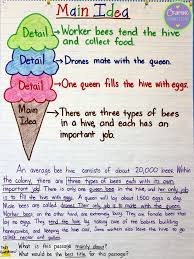 Main Idea
Detail
Worker bees tend the hive
and collect food.
Detail
Drones mate with the queen.
Detail
One queen fills the hive with eggs.
Main
Idea
There are three types of bees
in a hive, and each has an
important job.
An average bee hive consists of about 20,000 bees. Within
the colony, there are three types of bees each with its own
important job. There is only one queen bee in the hive, and her only job
is to fill the hive with eggs. A queen will lay about 1,500 eggs a day.
Male bees are called drones. Their only job is to mate with the queen.
Worker bees, on the other hand, are extremely busy. They are female bees that
tend the hive
What is this passage mainly about?
What would be the best title for this passage?